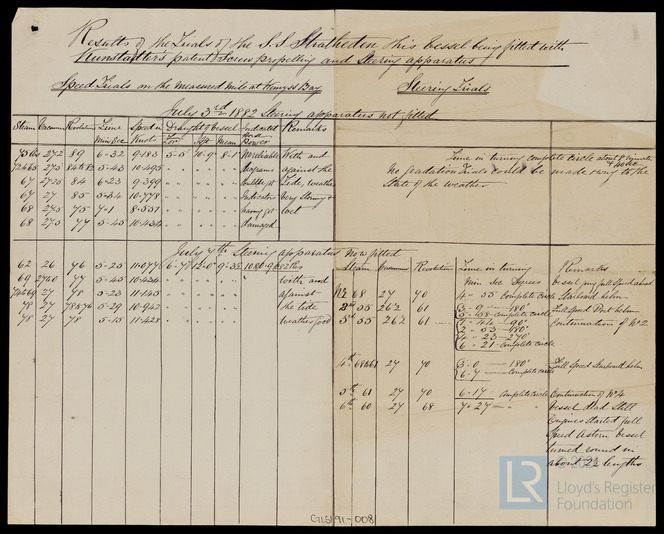 Results of the Trials of the S.S. Strathleven this Vessel being fitted with
Kunstadter's patent Screw propelling and Steering apparatus
Speed Trials on the Measured Mile at Wemyss Bay
Steering Trials
July 3rd 1882 Steering apparatus not fitted
Steam Vacuum Revolutions Time Speed in Draught of Vessel Indicated Remarks
Min Sec Knots For Aft Mean Horse Power
27½ 89 6-32 9.183 5-5 10-9 8-1 Noreliable With and
5-43 10.495 diagrams against the
67 84 6-23 9.399 Couldbe got tide, weather
67 27 85 5-34 10.778 Indicator Very Strong &
68 27½ 75 7-1 8.551 having got wet
68 27½ 77 5-45 10.434 damaged
Time in turning complete circle about 8 minutes
No gradation trials could be made owing to the
State of the weather
July 7th Steering apparatus Now fitted
62 26 76 5-25 11.077 6-7 12-0 9-3½
with and
against
the tide
weather good
5-23 11.145
78 27 5-29 10.942
78 27 78 5-15 11.428
Steam Vacuum Revolution Time in turning Remarks
Min Sec Degrees
No 1 68 27 70 4-55 Complete Circle Vessel going full Speed ahead Starboard helm
2nd 55 26½ 61 3-8 — 180° Full Speed Port helm
5-158 Complete Circle
3rd 55 26½ 61 1-44 — 90° Continuation of No 2
2-53 — 180°
4-23 — 270°
6-21 — Complete circle
4th 27 70 3-0 — 180° Full Speed Starboard helm
6-7 — Complete circle
5th 61 27 70 6-17 Complete Circle Continuation of No 4
6th 60 27 68 7-27 — " Vessel dead Still
Engines started full
Speed Astern Vessel
turned round in
about 2½ lengths
GLSI91-008
LR
©
Lloyd's Register
Foundation